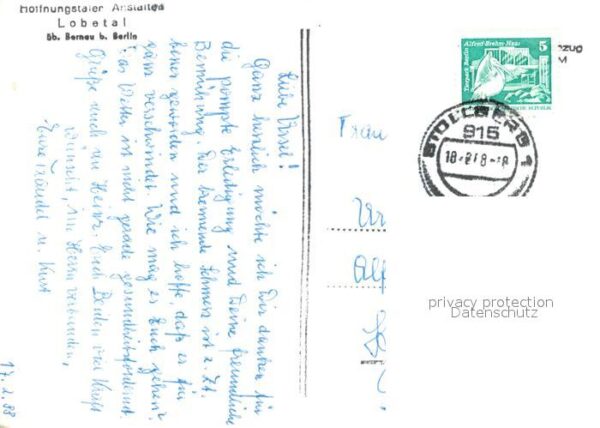 Hoffnungstaler Anstalten
Lobetal
üb. Bernau b. Berlin
Liebe Ursel!
Ganz herzlich möchte ich Dir danken für
die prompte Erledigung und Deine freundliche
Bemühung. Der brennende Schmerz ist z. Zt.
besser geworden und ich hoffe daß es
ganz verschwindet. Wie mag es Euch gehen?
Das Wetter ist nicht grade gesundheitsfördernd.
Grüße auch an Heinz. Euch Beiden viel Kraft
wünscht, im Herrn verbunden,
Eure Traudel u. Kurt
17.2.88
Frau
Alfred-Brehm-Haus
Tierpark Berlin
5
nzug
M
STOLLBERG 1
915
privacy protection
Datenschutz